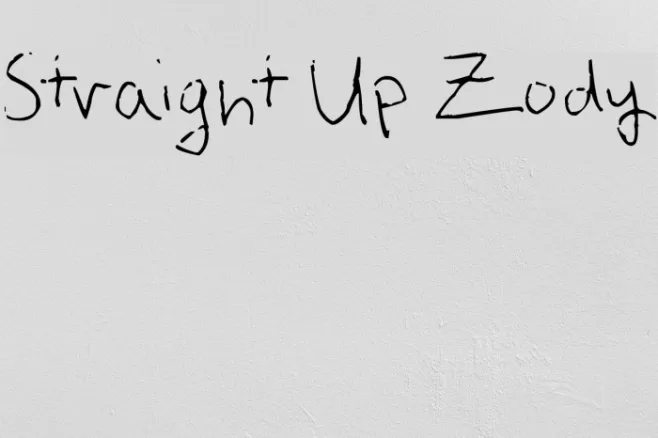 Straight Up Zody